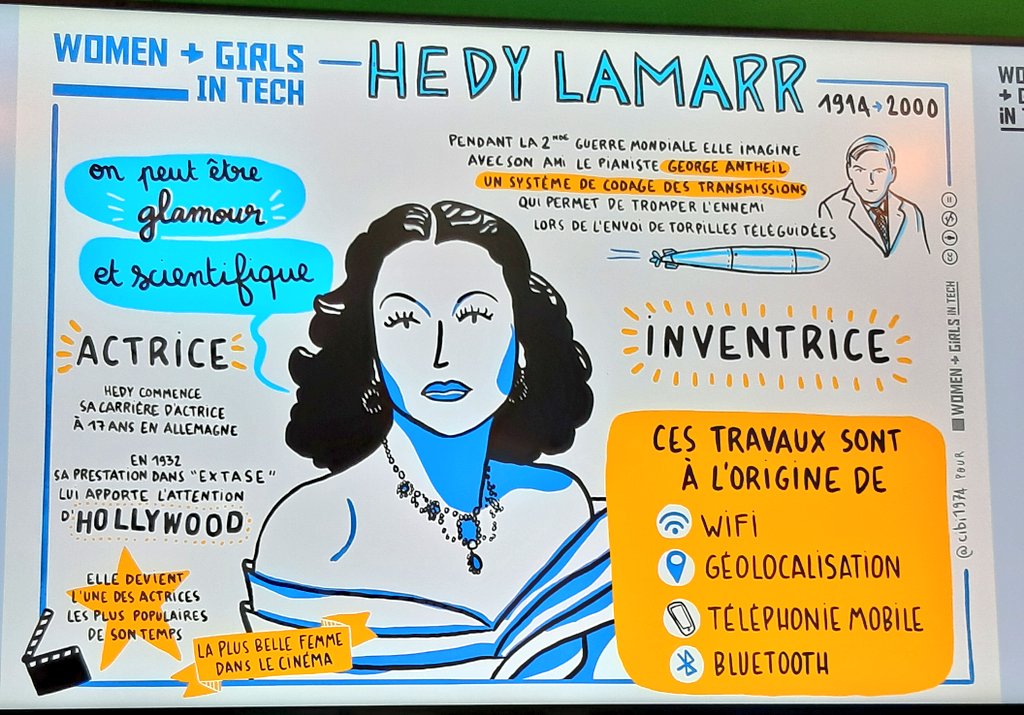 WOMEN + GIRLS
IN TECH
HEDY LAMARR
1914→2000
on peut être
glamour
et scientifique
PENDANT LA 2NDE GUERRE MONDIALE ELLE IMAGINE
AVEC SON AMI LE PIANISTE GEORGE ANTHEIL
UN SYSTÈME DE CODAGE DES TRANSMISSIONS
QUI PERMET DE TROMPER L'ENNEMI
LORS DE L'ENVOI DE TORPILLES TÉLÉGUIDÉES
ACTRICE
HEDY COMMENCE
SA CARRIÈRE D'ACTRICE
À 17 ANS EN ALLEMAGNE
EN 1932
SA PRESTATION DANS "EXTASE"
LUI APPORTE L'ATTENTION
D'HOLLYWOOD
ELLE DEVIENT
L'UNE DES ACTRICES
LES PLUS POPULAIRES
DE SON TEMPS
LA PLUS BELLE FEMME
DANS LE CINÉMA
INVENTRICE
CES TRAVAUX SONT
À L'ORIGINE DE
WIFI
GÉOLOCALISATION
TÉLÉPHONIE MOBILE
BLUETOOTH
@cibi1974 POUR WOMEN + GIRLS IN TECH
cc
WO
+ G
IN T